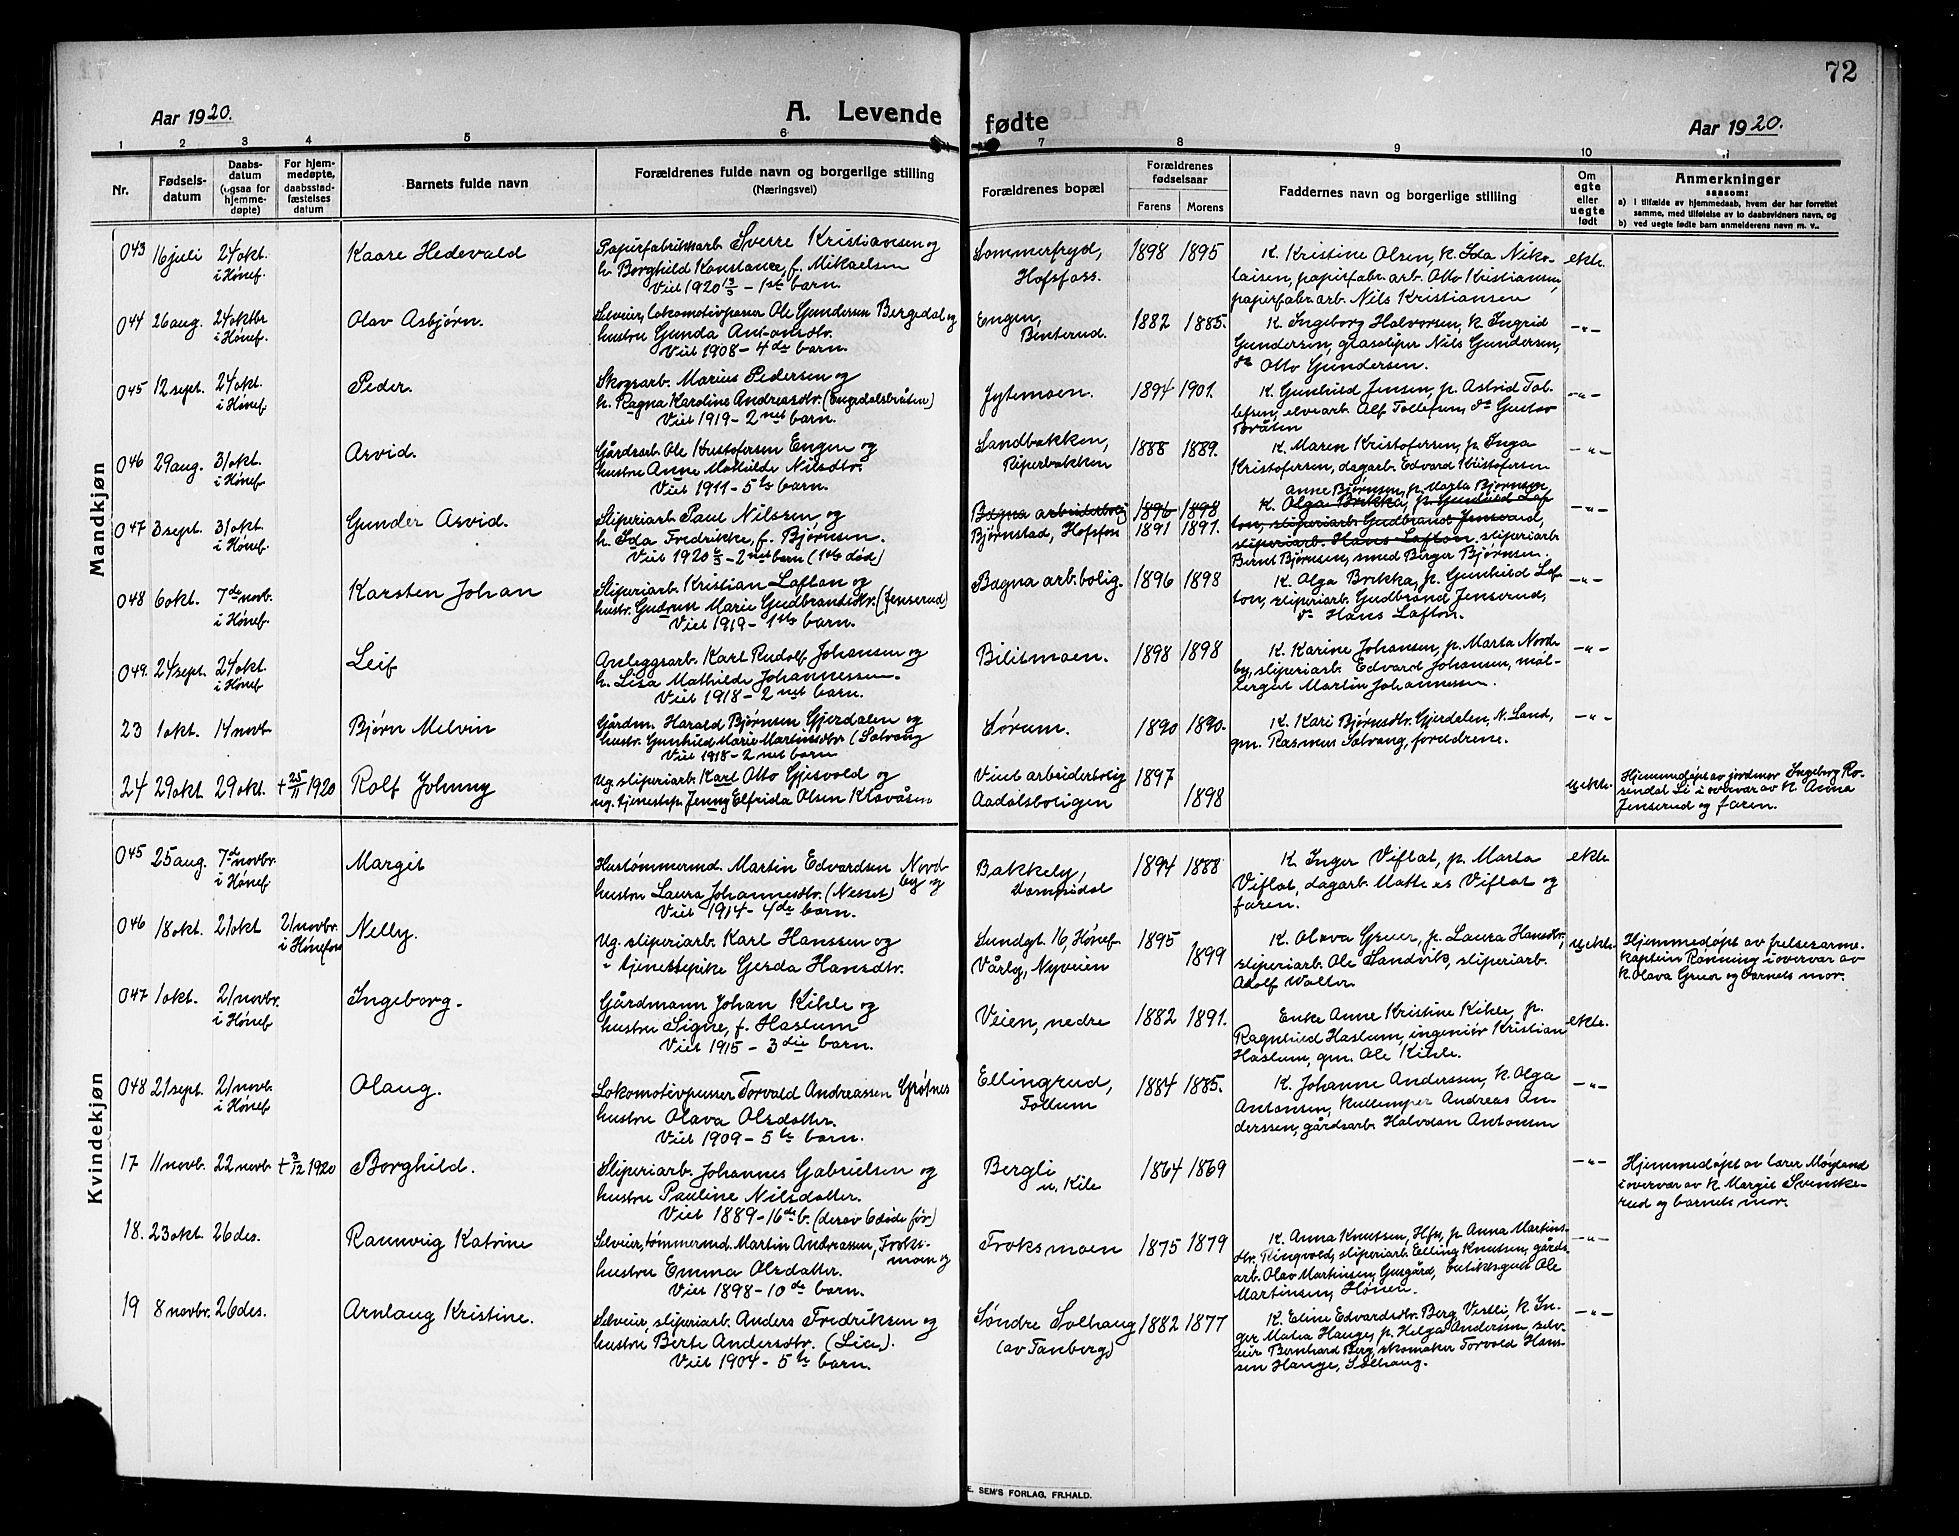 72
Aar 1920.
A. Levende fødte
Aar 1920.
1 2 3 4 5 6 7 8 9 10 11
Nr.
Fødsels-
datum
Daabs-
datum
(ogsaa for
hjemme-
døpte)
For hjem-
medøpte,
daabsstad-
fæstelses
datum
Barnets fulde navn
Forældrenes fulde navn og borgerlige stilling
(Næringsvei)
Forældrenes bopæl
Forældrenes
fødselsaar
Farens Morens
Faddernes navn og borgerlige stilling
Om
egte
eller
uegte
født
Anmerkninger
saasom:
a) I tilfælde av hjemmedaab, hvem der har forrettet
samme, med tilføielse av to daabsvidners navn, og
b) ved uegte fødte barn anmelderens navn m. v..
Mandkjøn
043 16 juli 24 okt. i Hønef. Kaare Hedevald
Papirfabrikkarb. Sverre Kristiansen og
h. Borghild Konstance, f. Mikaelsen
Viet 1920 3/3 - 1ste barn.
Sommerfryd,
Hofsfoss.
1898 1895
K. Kristine Olsen, k. Ida Niko-
laisen, papirfabr.arb. Otto Kristiansen,
papirfabr.arb. Nils Kristiansen
ekte.
044 26 aug. 24 oktbr i Hønef. Olav Asbjørn.
Selveier, lokomotivpusser Ole Gundersen Bergedal og
hustru Gunda Antonsdtr.
Viet 1908 - 4de barn.
Engen,
Benterud.
1882 1885.
K. Ingeborg Halvorsen, k. Ingrid
Gundersen, glassliper Nils Gundersen,
do Otto Gundersen.
-"-
045 12 sept. 24 okt. i Hønef. Peder.
Skogsarb. Marius Pedersen og
h. Ragna Karoline Andreasdtr. (Engedalsbråten)
Viet 1919 - 2net barn.
Jytemoen.
1894 1901.
K. Gunhild Jensen, p. Astrid Tol-
lefsen, elvearb. Alf Tollefsen, do Gustav
Bråten
-"-
046 29 aug. 31 okt. i Hønef. Arvid.
Gårdsarb. Ole Kristofersen Engen og
hustru Anne Mathilde Nilsdtr.
Viet 1911 - 5te barn.
Sandbakken,
Riperbakken
1888 1889.
K. Maren Kristofersen, p. Inga
Kristofersen, dagarb. Edvard Kristofersen
-"-
047 3 sept. 31 okt. i Hønef. Gunder Arvid.
Sliperiarb. Paul Nilsen og
h. Ida Fredrikke, f. Bjørnsen.
Viet 1920 6/3 - 2net barn (1ste død)
Bægna arbeiderbolig
Bjørnstad, Hofsfos
1896 1898
1891 1891.
Anne Bjørnsen, p. Marta Bjørnsen,
K. Olga Brekka, p. Gunhild Laf-
ton, sliperiarb. Gudbrand Jenserud,
sliperiarb. Hans Lafton, sliperiarb.
Bernt Bjørnsen, smed Berger Bjørnsen.
-"-
048 6 okt. 7de novb. i Hønef. Karsten Johan
Sliperiarb. Kristian Lafton og
hustr. Gudrun Marie Gudbrandsdtr. (Jenserud)
Viet 1919 - 1ste barn.
Bægna arb.bolig.
1896 1898
K. Olga Brekka, p. Gunhild Laf-
ton, sliperiarb. Gudbrand Jenserud,
do Hans Lafton.
-"-
049. 24 sept. 24 okt. i Hønef. Leif
Anleggsarb. Karl Rudolf Johansen og
h. Lisa Mathilde Johannessen.
Viet 1918 - 2net barn.
Bilitmoen.
1898 1898
K. Karine Johansen, p. Marta Nord-
by, sliperiarb. Edvard Johansen, mål-
Martin Johannessen.
-"-
23 1 okt. 14 novb Bjørn Melvin
Gårdm. Harald Bjørnsen Gjerdalen og
hustr. Gunhild Marie Martinsdtr (Solvang
Viet 1918 - 2net barn
Sørum.
1890 1890.
K. Kari Bjørnsdtr. Gjerdalen, N. Land,
gm. Rasmus Solvang, foreldrene.
-"-
24 29 okt. 29 okt. † 25/11 1920 Rolf Johnny
Ug. sliperiarb. Karl Otto Gjesvold og
ug. tjenestep. Jenny Elfrida Olsen Klovåsen
Viul arbeiderbolig
Aadalsboligen
1897
1898
uekte.
Hjemmedøpt av jordmor Ingeborg Ro-
sendal Li i overvær av k. Anna
Jenserud og faren.
Kvindekjøn
045 25 aug. 7de novbr. i Hønef. Margit
Hustømmermd. Martin Edvardsen Nord-
by og
hustru Laura Johannesdtr. (Nesset)
Viet 1914 - 4de barn.
Bakkely,
1894 1888
K. Inger Viflat, p. Marta
Viflat, dagarb. Mattæus Viflat og
faren.
ekte
046 18 okt. 21 okt 21 novbr. i Hønefoss Nelly.
Ug. sliperiarb. Karl Hanssen og
" tjenestepike Gerda Hansdtr.
Sundgt. 16, Hønef.
Vårby, Nyveien
1895
1899
K. Olava Gruer, p. Laura Hansdtr.,
sliperiarb. Ole Sandvik, sliperiarb.
Adolf Waller.
uekte.
Hjemmedøpt av frelsesarme-
kaptein Rønning i overvær av
k. Olava Gruer og barnets mor.
047 1 okt. 21 novbr. i Hønef Ingeborg.
Gårdmann Johan Kihle og
hustru Signe, f. Haslum
Viet 1915 - 3die barn.
Veien, nedre
1882 1891.
Enke Anne Kristine Kihle, p.
Ragnhild Haslum, ingeniør Kristian
Haslum, gm. Ole Kihle.
ekte.
048 21 sept. 21 novb. i Hønef Olaug.
Lokomotivpusser Torvald Andreassen Grøtnes
hustru Olava Olsdatter.
Viet 1909 - 5te barn.
Ellingrud,
Follum
1884 1885.
K. Johanne Anderssen, k. Olga
Antonsen, kullemper Andreas An-
derssen, gårdsarb. Halvdan Antonsen
-"-
17 11 novb. 22 novb † 3/12 1920 Borghild.
Sliperiarb. Johannes Gabrielsen og
hustru Pauline Nilsdatter.
Viet 1889 - 16de b. (derav 6 døde før)
Bergli
u. Kile
1864 1869
-"-
Hjemmedøpt av lærer Møyland
i overvær av k. Margit Svenske-
rud og barnets mor.
18. 23 okt. 26 des. Raunveig Katrine
Selveier, tømmermd. Martin Andreassen, Froks-
moen og
hustru Emma Olsdatter.
Viet 1898 - 10de barn.
Froksmoen
1875 1879
K. Anna Knutsen, Hfs, p. Anna Martins-
dtr. Ringvold, sliperiarb. Elling Knutsen, gårds-
arb. Olav Martinsen, Gusgård, butiksgut Ole
Martinsen, Hønen.
-"-
19 8 novbr. 26 des. Arnlaug Kristine.
Selveier, sliperiarb. Anders Fredriksen og
hustru Berte Andersdtr. (Lia).
Viet 1904 - 5te barn.
Søndre Solhaug
(av Tanberg)
1882 1877
K. Eline Edvardsdtr. Berg, Vestli, k. In-
ger Matia Hauge, p. Helga Anderssen, selv-
eier Bernhard Berg, skomaker Torvald Hans-
sen Hauge, Solhaug.
-"-
E. SEM'S FORLAG, FR.HALD.